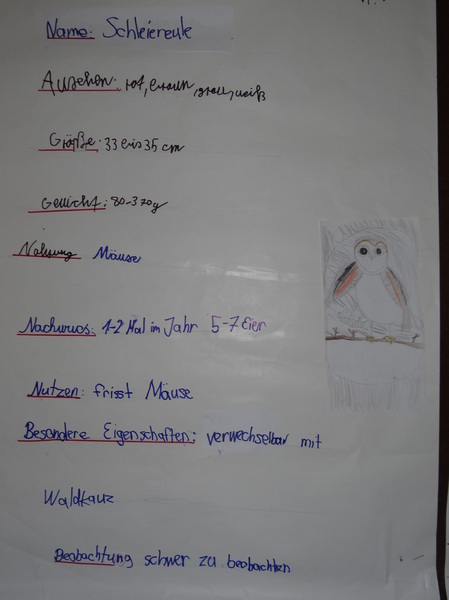 Name: Schleiereule
Aussehen: rot, braun, grau, weiß
Größe: 33 bis 35 cm
Gewicht: 80-370g
Nahrung Mäuse
Nachwuchs: 1-2 Mal im Jahr 5-7 Eier
Nutzen: frisst Mäuse
Besondere Eigenschaften: verwechselbar mit
Waldkauz
Beobachtung schwer zu beobachten